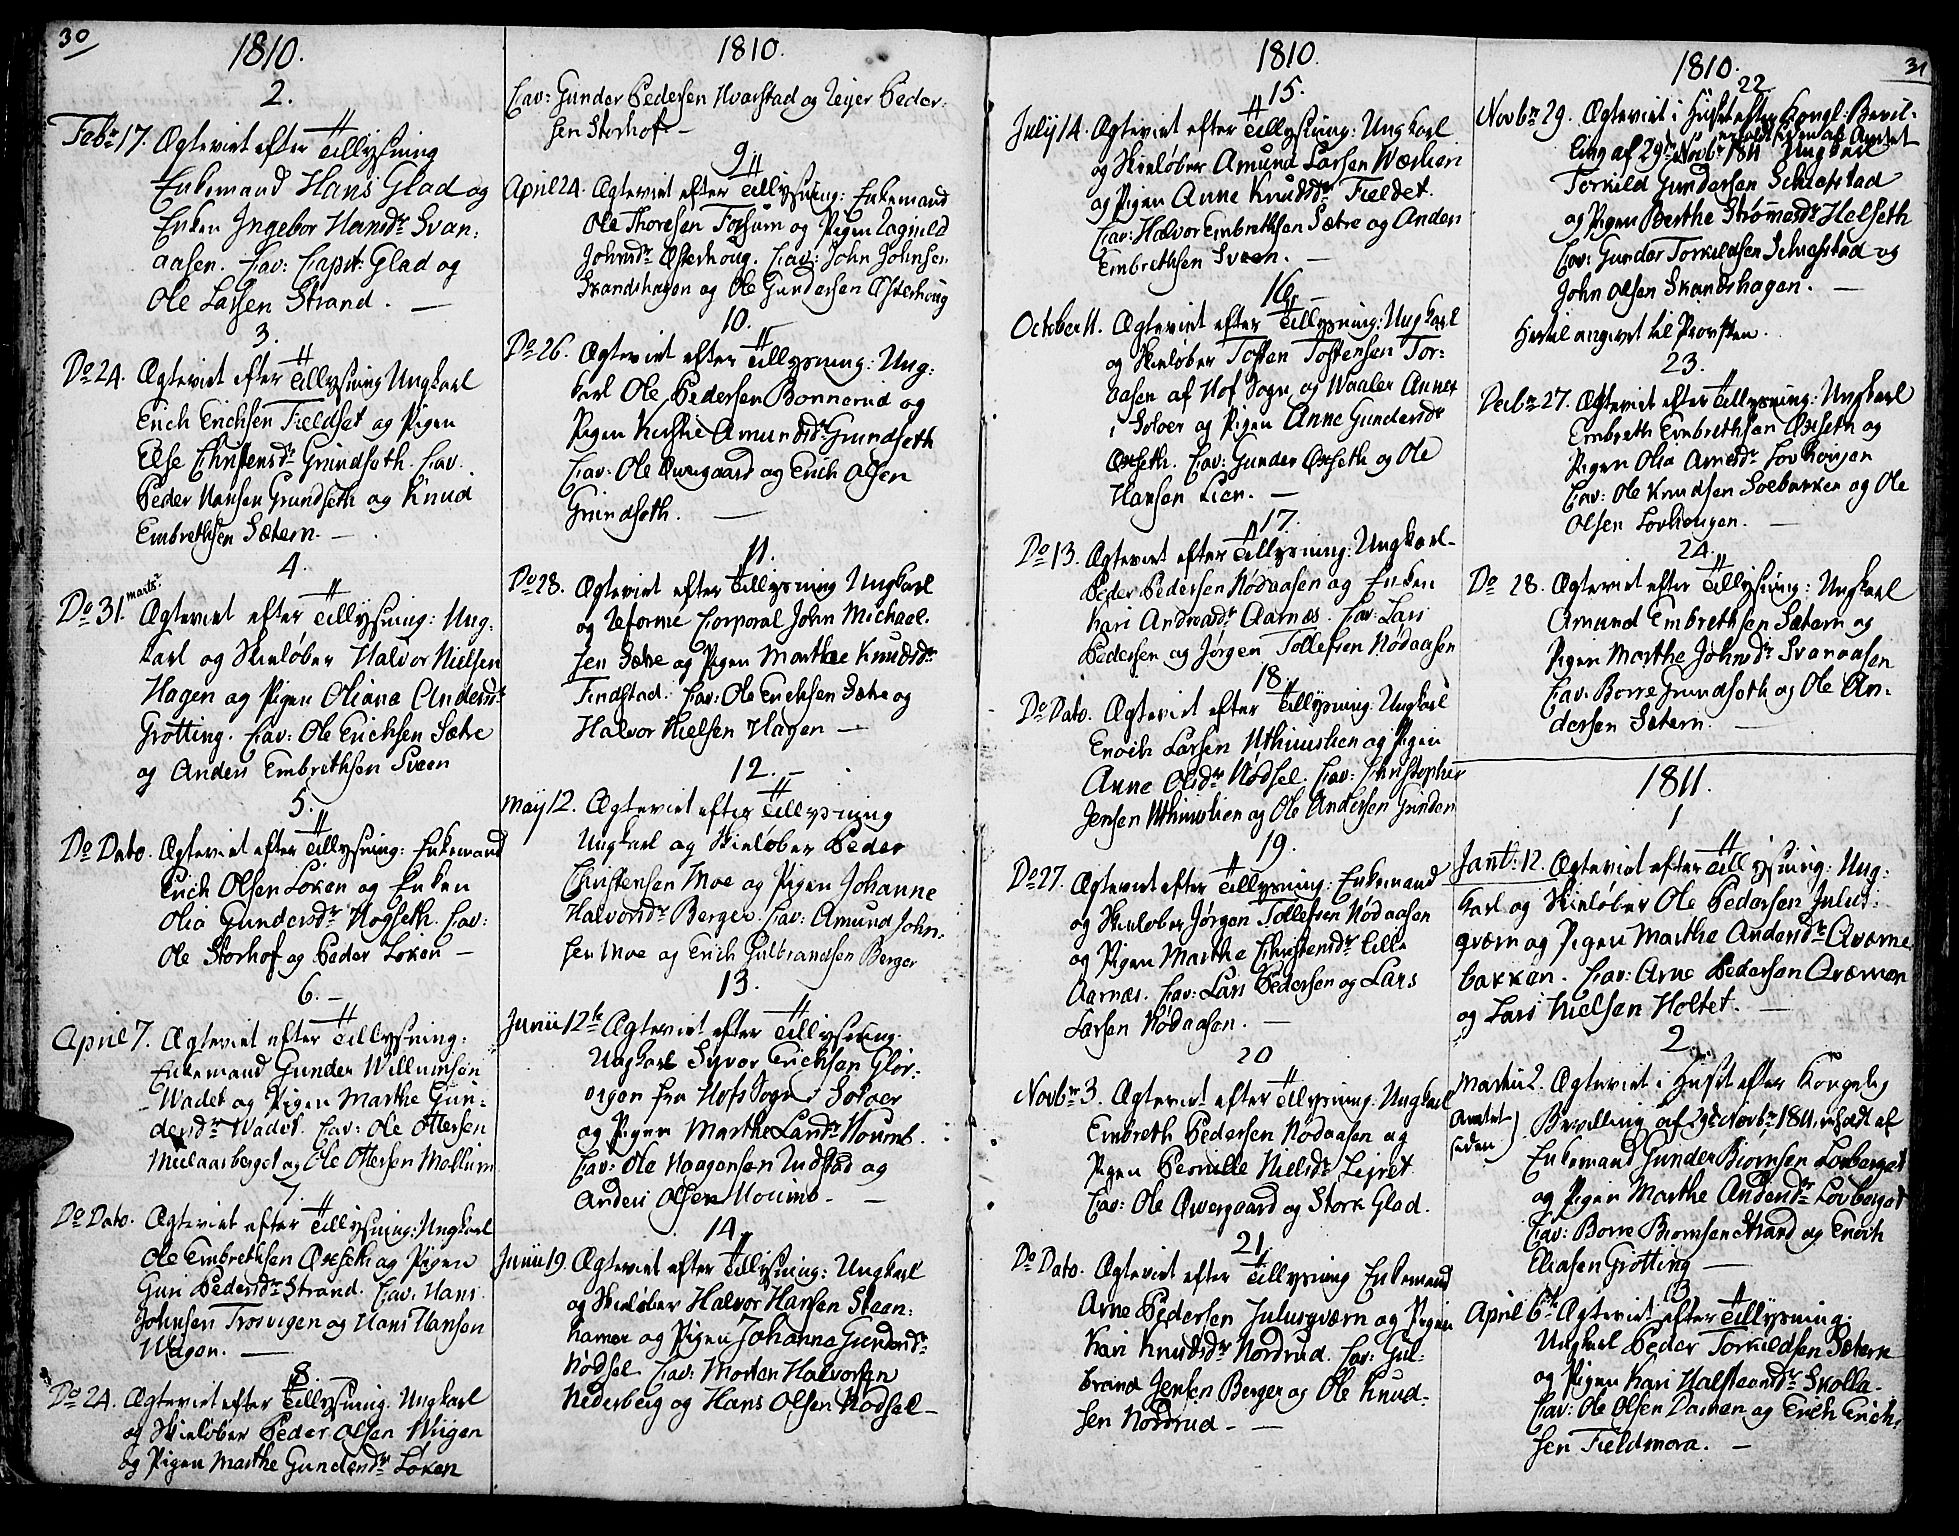 30
1810.
2.
Febr 17. Ægteviet efter Tillysning
Enkemand Hans Glad og
Enken Ingebor Hansdr Svan-
aasen. Cav: Capit: Glad og
Ole Larsen Strand. —
3.
Do 24. Ægteviet efter Tillysning Ungkarl
Erich Erichsen Fieldset og Pigen
Else Christensdr Grundseth. Cav.
Peder Hansen Grundseth og Knud
Embrethsen Sætern. —
4.
Do 31. marts. Ægteviet efter Tillysning: Ung-
karl og Skieløber Halvor Nielsen
Hagen og Pigen Oliana Andersdr
Grøtting. Cav: Ole Erichsen Sætre
og Anders Embrethsen Sveen
5.
Do Dato. Ægteviet efter Tillysning: Enkemand
Erich Olsen Løken og Enken
Olia Gundersdr Nogseth. Cav:
Ole Storhof og Peder Løken —
6. —
April 7. Ægteviet efter Tillysning:
Enkemand Gunder Willumsen
Wadet og Pigen Marthe Gun-
dersdr Wadet. Cav: Ole Ottersen
og Ole Ottersen Mellum
7.
Do Dato. Ægteviet efter Tillysning: Ungkarl
Ole Embrethsen Oxseth og Pigen
Guri Pedersdr Strand. Cav: Hans
Johnsen Trosvigen og Hans Hansen
Wigen. —
8.
Do 24. Ægteviet efter Tillysning. Ungkarl
og Skieløber Peder Olsen Wiigen
og Pigen Marthe Gundersdr Løken
1810.
Cav: Gunder Pedersen Hvarstad og Reier Peder-
sen Storhof —
9.
April 24. Ægteviet efter Tillysning: Enkemand
Ole Thoresen Fossum og Pigen Ragnild
Johnsdr Østerhoug. Cav: John Johnsen
Skandshagen og Ole Gundersen Østerhoug
10.
Do 26. Ægteviet efter Tillysning: Ung-
karl Ole Pedersen Bonnerud og
Pigen Kirstie Amundsdr Grundseth
Cav: Ole Qvergaard og Erich Olsen
Grundseth. —
11.
Do 28. Ægteviet efter Tillysning Ungkarl
og Reforme Corporal John Michael-
sen Sætre og Pigen Marthe Knudsdr
Findstad. Cav: Ole Erichsen Sætre og
Halvor Nielsen Hagen —
12. —
May 12. Ægteviet efter Tillysning
Ungkarl og Skieløber Peder
Christensen Moe og Pigen Johanne
Halvorsdr Berger. Cav: Amund John-
sen Moe og Erich Gulbrandsen Berger
13.
Junii 12te Ægteviet efter Tillysning
Ungkarl Syver Erichsen Glor-
vigen fra Hofs Sogn i Soløer
og Pigen Marthe Larsdr Noumb.
Cav: Ole Haagensen Rudstad og
Anders Olsen Noumb — —
14.
Junii 19. Ægteviet efter Tillysning: Ungkarl
og Skieløber Halvor Hansen Steen-
hamer og Pigen Johanna Gundersdr
Nødsel. Cav: Morten Halvorsen
Nederberg og Hans Olsen Nodsel —
1810.
15.
July 14. Ægteviet efter Tillysning: Ungkarl
og Skieløber Amund Larsen Wæslien
og Pigen Anne Knudsdr Fieldet.
Cav: Halvor Embrethsen Sætre og Anders
Embrethsen Sveen. —
16. —
October 11. Ægteviet efter Tillysning: Ungkarl
og Skieløber Tosten Tostensen Tor-
aasen af Hof Sogn og Waaler Annex
i Soloer og Pigen Anne Gundersdr
Oxseth. Cav: Gunder Oxseth og Ole
Hansen Lien. —
17.
Do 13. Ægteviet efter Tillysning: Ungkarl
Peder Pedersen Nødaasen og Enken
Kari Andreasdr Aarnæs. Cav: Lars
Pedersen og Jørgen Tollefsen Nødaasen
18.
Do Dato. Ægteviet efter Tillysning Ungkarl
Enoch Larsen Uthuuslien og Pigen
Anne Olsdr Nødsel. Cav: Christopher
Jensen Uthuuslien og Ole Andersen Gunder
19.
Do 27. Ægteviet efter Tillysning: Enkemand
og Skieløber Jørgen Tollefsen Nødaasen
og Pigen Marthe Christensdr Lille
Aarnæs. Cav: Lars Pedersen og Lars
Larsen Nødaasen. —
20
Novbr 3. Ægteviet efter Tillysning: Ungkarl
Embreth Pedersen Nødaasen og
Pigen Pernille Nielsdr Lejret
Cav: Ole Qvergaard og Stork Glad.
21.
Do Dato. Ægteviet efter Tillysning Enkemand
Arne Pedersen Julusqværn og Pigen
Kari Knudsdr Nordrud. Cav: Gul-
brand Jensen Berger og Ole Knud-
sen Nordrud — —
31
1810.
22
Novbr 29. Ægteviet i Huset efter Kongl: Bevil-
ling af 29de Novbr 1811 Ungkarl
Torkild Gundersen Schiefstad
og Pigen Berthe Strømersdr Helseth
Cav: Gunder Torkildsen Schiefstad og
John Olsen Skandshagen. —
Hertil angivet til Provsten.
23.
Decbr 27. Ægteviet efter Tillysning: Ungkarl
Embreth Embrethsen Oxseth og
Pigen Olia Arnesdr Lovhougen
Cav: Ole Knudsen Soebakken og Ole
Olsen Lovhougen. —
24.
Do 28. Ægteviet efter Tillysning: Ungkarl
Amund Embrethsen Sætern og
Pigen Marthe Johnsdr Svanaasen
Cav: Borre Grundseth og Ole An-
dersen Sætern. —
1811.
1
Janv: 12. Ægteviet efter Tillysning: Ung-
karl og Skieløber Ole Pedersen Julus-
qværn og Pigen Marthe Andersdr Qværne
bakken. Cav: Arne Pedersen Qværnen
og Lars Nielsen Holtet. —
2.
Martii 2. Ægteviet i Huset efter Kongelig
Bevilling af 29de Novbr 1811, udstedt af
Amtet
Enkemand Gunder Biørnsen Lovberget
og Pigen Marthe Andersdr Lovberget
Cav: Borre Biornsen Strand og Enoch
Eliasen Grötting —
3
April 6te Ægteviet efter Tillysning:
Ungkarl Peder Torkildsen Sætern
og Pigen Kari Halsteensdr Skolla-
Cav: Ole Olsen Damen og Erich Erich-
sen Fieldmora. —